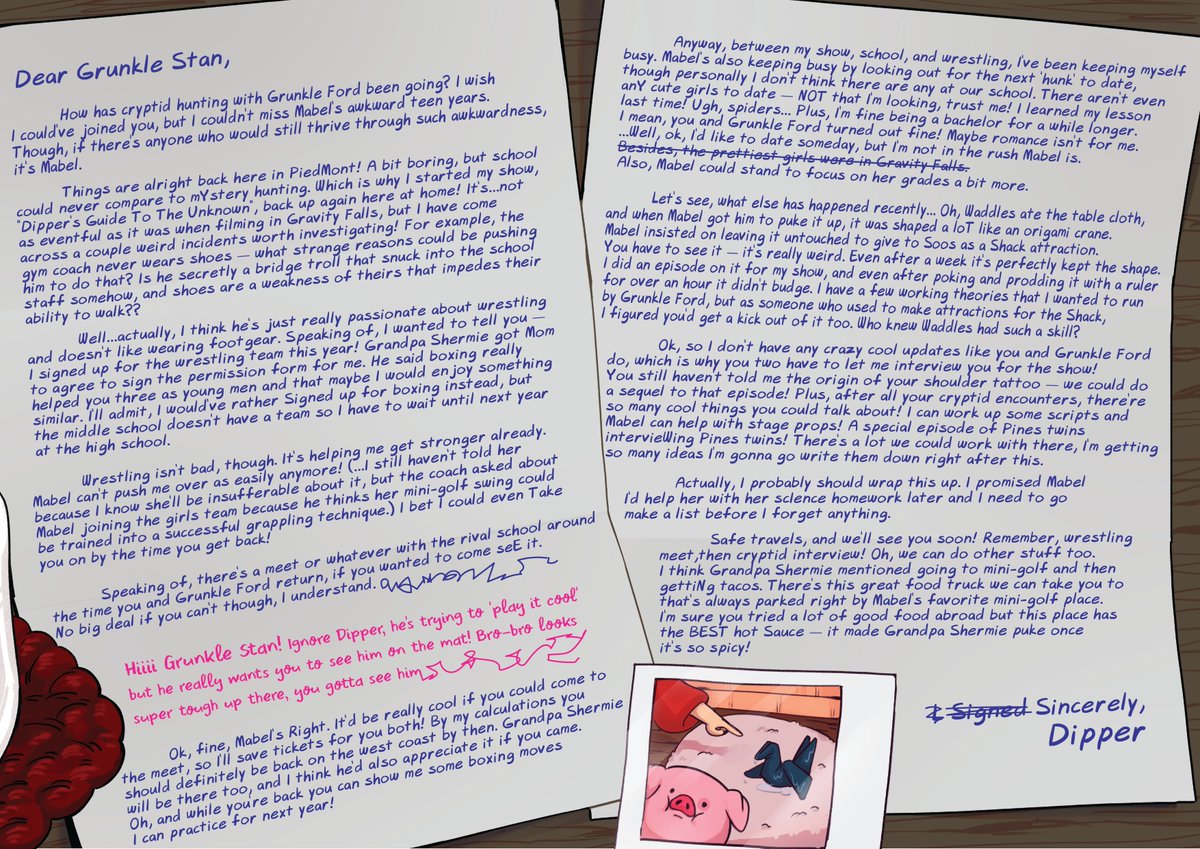 Dear Grunkle Stan,
How has cryptid hunting with Grunkle Ford been going? I wish
I could've joined you, but I couldn't miss Mabel's awkward teen years.
Though, if there's anyone who would still thrive through such awkwardness,
it's Mabel.
Things are alright back here in PiedMont! A bit boring, but school
could never compare to mYstery hunting. Which is why I started my show,
"Dipper's Guide To The Unknown", back up again here at home! It's...not
as eventful as it was when filming in Gravity Falls, but I have come
across a couple weird incidents worth investigating! For example, the
gym coach never wears shoes — what strange reasons could be pushing
him to do that? Is he secretly a bridge troll that snuck into the school
staff somehow, and shoes are a weakness of theirs that impedes their
ability to walk??
Well...actually, I think he's just really passionate about wrestling
and doesn't like wearing footgear. Speaking of, I wanted to tell you —
I signed up for the wrestling team this year! Grandpa Shermie got Mom
to agree to sign the permission form for me. He said boxing really
helped you three as young men and that maybe I would enjoy something
similar. I'll admit, I would've rather Signed up for boxing instead, but
the middle school doesn't have a team so I have to wait until next year
at the high school.
Wrestling isn't bad, though. It's helping me get stronger already.
Mabel can't push me over as easily anymore! (...I still haven't told her
because I know she'll be insufferable about it, but the coach asked about
Mabel joining the girls team because he thinks her mini-golf swing could
be trained into a successful grappling technique.) I bet I could even Take
you on by the time you get back!
Speaking of, there's a meet or whatever with the rival school around
the time you and Grunkle Ford return, if you wanted to come seE it.
No big deal if you can't though, I understand.
Hiiii Grunkle Stan! Ignore Dipper, he's trying to 'play it cool'
but he really wants you to see him on the mat! Bro-bro looks
super tough up there, you gotta see him
Ok, fine, Mabel's Right. It'd be really cool if you could come to
the meet, so I'll save tickets for you both! By my calculations you
should definitely be back on the west coast by then. Grandpa Shermie
will be there too, and I think he'd also appreciate it if you came.
Oh, and while you're back you can show me some boxing moves
I can practice for next year!
Anyway, between my show, school, and wrestling, I've been keeping myself
busy. Mabel's also keeping busy by looking out for the next 'hunk' to date,
though personally I don't think there are any at our school. There aren't even
anY cute girls to date — NOT that I'm looking, trust me! I learned my lesson
last time! Ugh, spiders... Plus, I'm fine being a bachelor for a while longer.
I mean, you and Grunkle Ford turned out fine! Maybe romance isn't for me.
...Well, ok, I'd like to date someday, but I'm not in the rush Mabel is.
Besides, the prettiest girls were in Gravity Falls.
Also, Mabel could stand to focus on her grades a bit more.
Let's see, what else has happened recently... Oh, Waddles ate the table cloth,
and when Mabel got him to puke it up, it was shaped a loT like an origami crane.
Mabel insisted on leaving it untouched to give to Soos as a Shack attraction.
You have to see it — it's really weird. Even after a week it's perfectly kept the shape.
I did an episode on it for my show, and even after poking and prodding it with a ruler
for over an hour it didn't budge. I have a few working theories that I wanted to run
by Grunkle Ford, but as someone who used to make attractions for the Shack,
I figured you'd get a kick out of it too. Who knew Waddles had such a skill?
Ok, so I don't have any crazy cool updates like you and Grunkle Ford
do, which is why you two have to let me interview you for the show!
You still haven't told me the origin of your shoulder tattoo — we could do
a sequel to that episode! Plus, after all your cryptid encounters, there're
so many cool things you could talk about! I can work up some scripts and
Mabel can help with stage props! A special episode of Pines twins
intervieWing Pines twins! There's a lot we could work with there, I'm getting
so many ideas I'm gonna go write them down right after this.
Actually, I probably should wrap this up. I promised Mabel
I'd help her with her scIence homework later and I need to go
make a list before I forget anything.
Safe travels, and we'll see you soon! Remember, wrestling
meet,then cryptid interview! Oh, we can do other stuff too.
I think Grandpa Shermie mentioned going to mini-golf and then
gettiNg tacos. There's this great food truck we can take you to
that's always parked right by Mabel's favorite mini-golf place.
I'm sure you tried a lot of good food abroad but this place has
the BEST hot Sauce — it made Grandpa Shermie puke once
it's so spicy!
Signed Sincerely,
Dipper